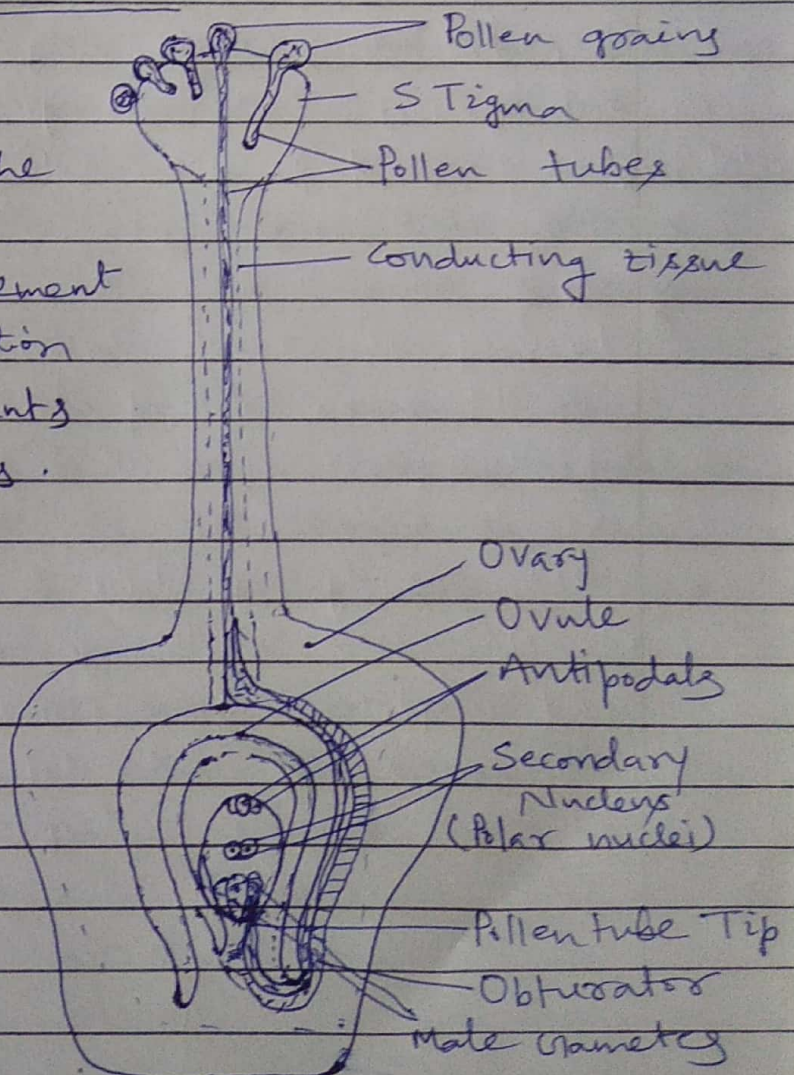 Pollen grains
STigma
Pollen tubes
Conducting tissue
ement
tion
nts
s.
Ovary
Ovule
Antipodals
Secondary
Nucleus
(Polar nuclei)
Pollen tube Tip
Obturator
Male Gametes